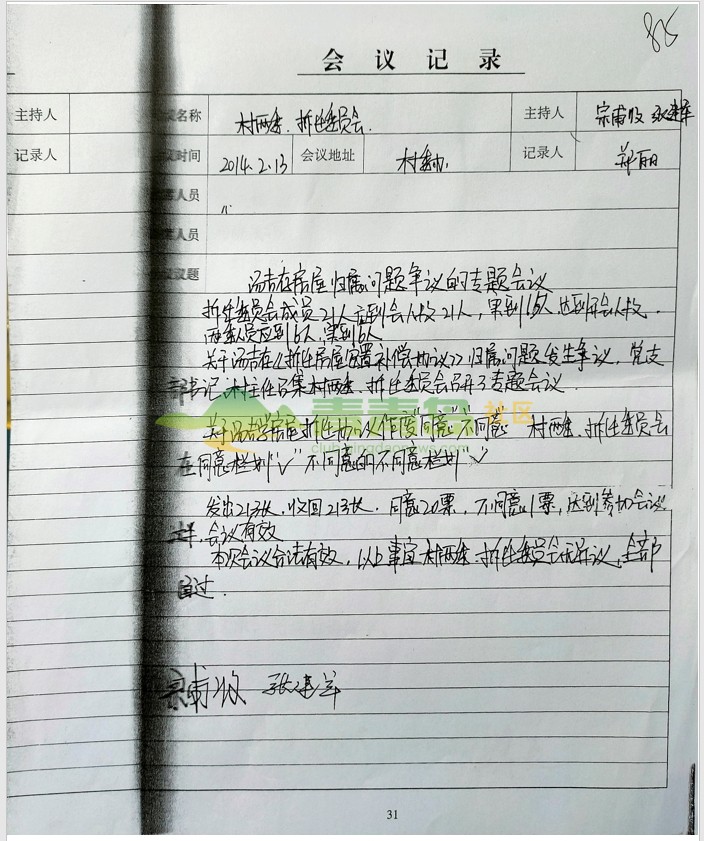 825
会议记录
主持人 议名称 村两委.拆迁委员会. 主持人 宗甫收
记录人 议时间 2014.2.13 会议地址 村委办. 记录人 郑丽
人员
人员
议题
汤吉在房屋归属问题争议的专题会议
拆迁委员会成员21人应到会人数21人,实到 人,达到开会人数.
两委人员应到6人,实到6人
关于汤吉在《拆迁房屋安置补偿协议》归属问题发生争议,党支
部书记.村主任召集村两委.拆迁委员会召开了专题会议.
关于汤吉 房屋拆迁协议作废"同意""不同意 村两委.拆迁委员会
在同意栏划"√"不同意的不同意栏划"√"
青青岛社区
club.qingdaonews.com
发出21张,收回21张.同意20票,不同意1票,达到参加会议
会议有效
本次会议合法有效,以上事宜村两委.拆迁委员会无异议,全部
通过.
宗甫收 张建
31